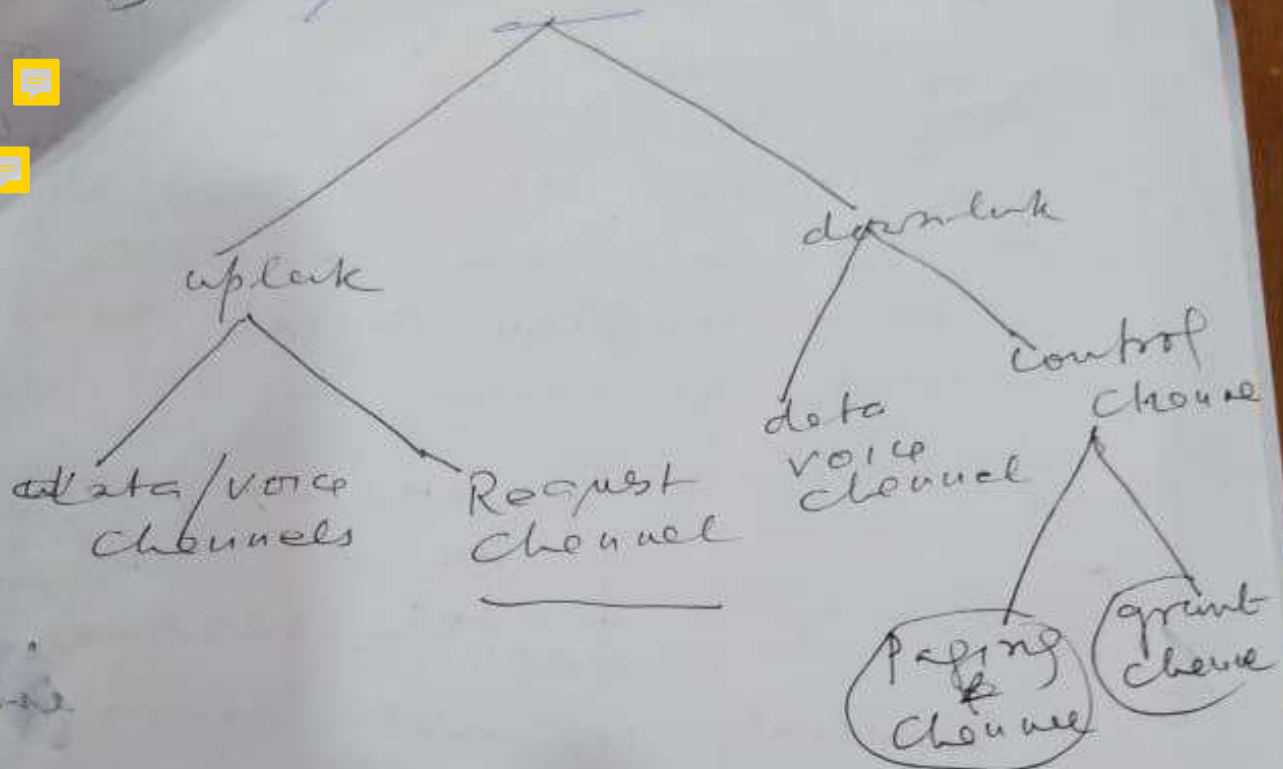 uplink
downlink
data/voice
channels
Request
channel
data
voice
channel
control
channe
Paging
channel
grant
channe